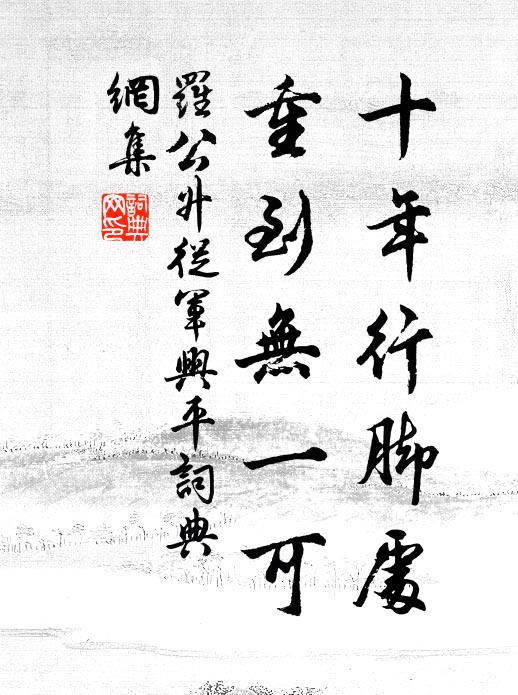 十年行脚處
重到無一可
羅公升從軍興平詞典
網集
詞典
网印